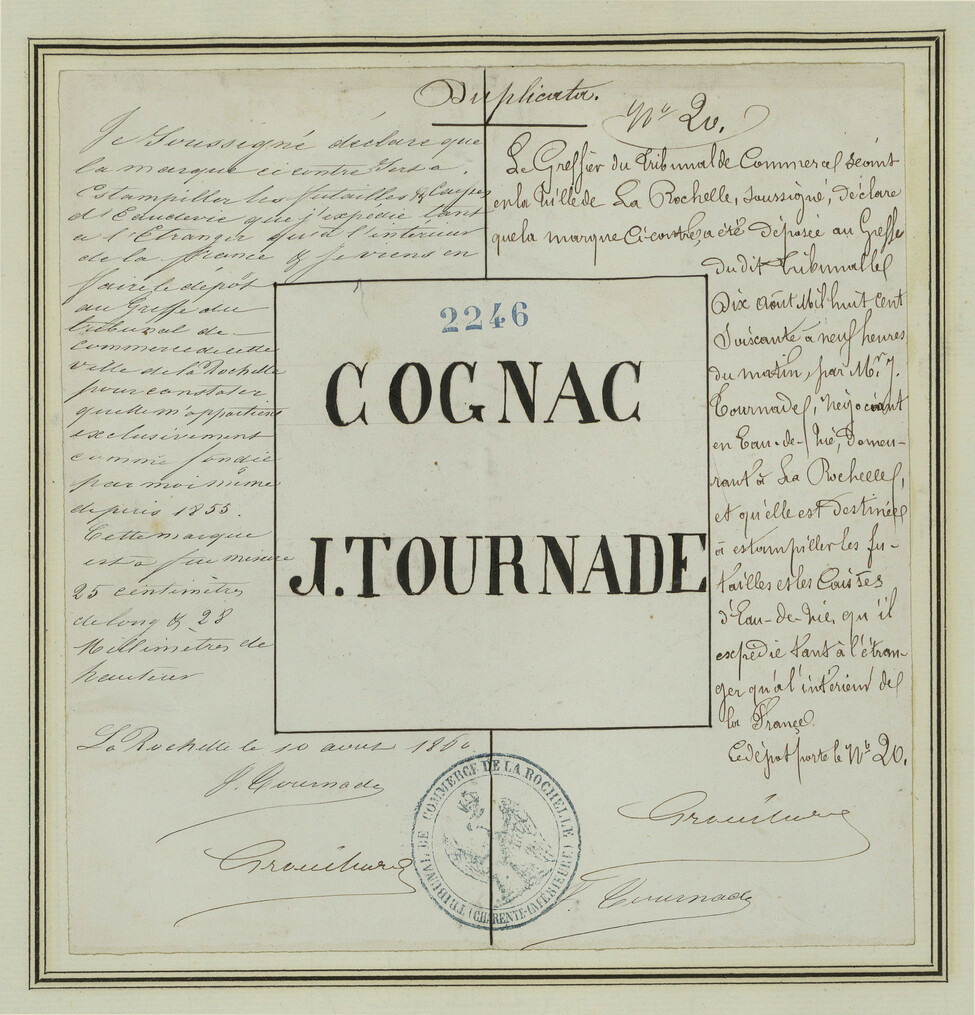 Duplicata.
Je Soussigné déclare que
la marque ci contre sert à
Estampiller les futailles & Caisses
d'Eaudevie que j'expedie tant
a l'Etranger qu'à l'interieur
de la france & je viens en
faire le dépôt
au Greffe du
tribunal de
commerce de cette
ville de la Rochelle
pour constater
qu'elle m'appartient
exclusivement
comme fondée
par moi même
depuis 1855.
Cette marque
est a
25 centimètres
de long & 28
Millimètres de
hauteur
La Rochelle le 10 aout 1860
J. Tournade
2246
COGNAC
J. TOURNADE
No 20.
Le Greffier du Tribunal de Commerce séant
en la Ville de La Rochelle, soussigné, déclare
que la marque ci-contre, a été déposée au Greffe
du dit Tribunal le
Dix Août Mil huit cent
soixante à neuf heures
du matin, par Mr. J.
Tournade, négociant
en Eau-de-Vie, demeu-
rant à La Rochelle,
et qu'elle est destinée
à estampiller les fu-
tailles et les Caisses
d'Eau-de-Vie, qu'il
expédie tant à l'étran-
ger qu'à l'intérieur de
la France.
Le dépôt porte le No 20.
J. Tournade
TRIBUNAL DE COMMERCE DE LA ROCHELLE
(CHARENTE-INFÉRIEURE)